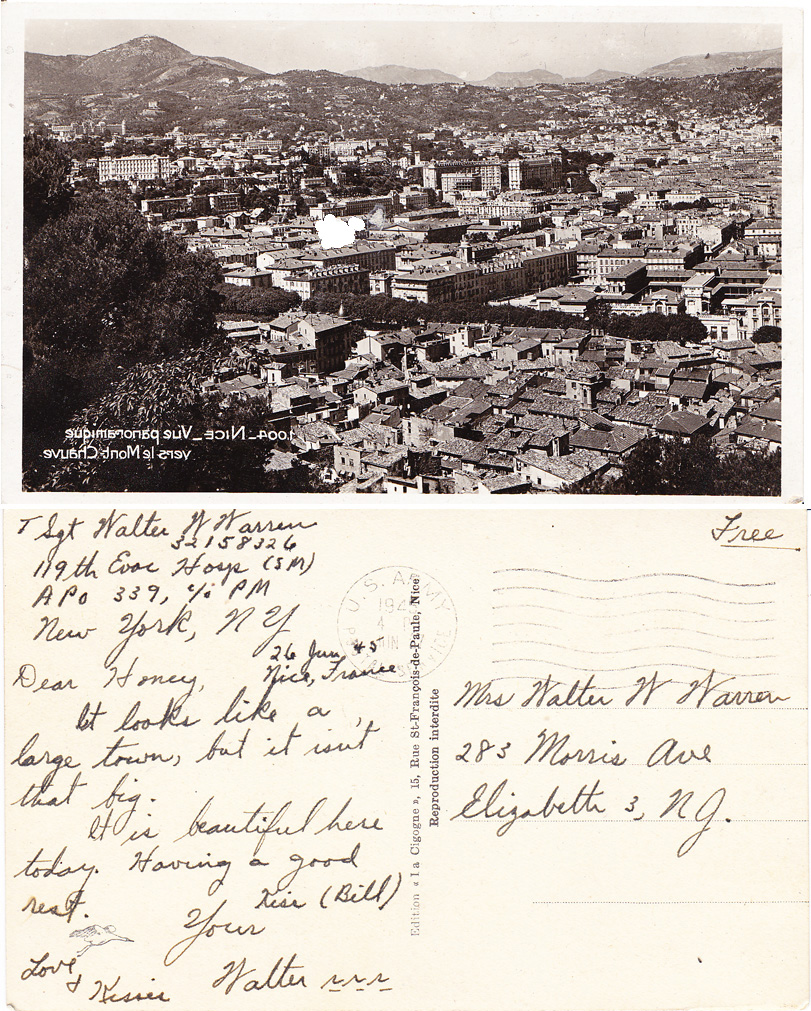 1.004_NICE_Vue panoramique
vers le Mont-Chauve
T Sgt Walter W Warren
32158326
119th Evac Hosp (SM)
APO 339, c/o PM
New York, NY
26 Jun 45
Nice, France
Dear Honey,
It looks like a
large town, but it isn't
that big.
It is beautiful here
today. Having a good
rest.
(Bill)
Your
Love
&
Kisses
Walter
Free
U.S. ARMY
Mrs Walter W Warren
283 Morris Ave
Elizabeth 3, NJ.
Edition « La Cigogne », 15, Rue St-François-de-Paule, Nice
Reproduction interdite